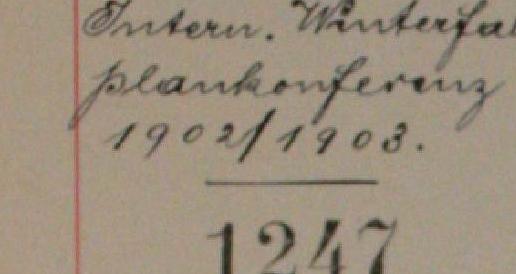 Intern. Winterfa
plankonferenz
1902/1903.
1247